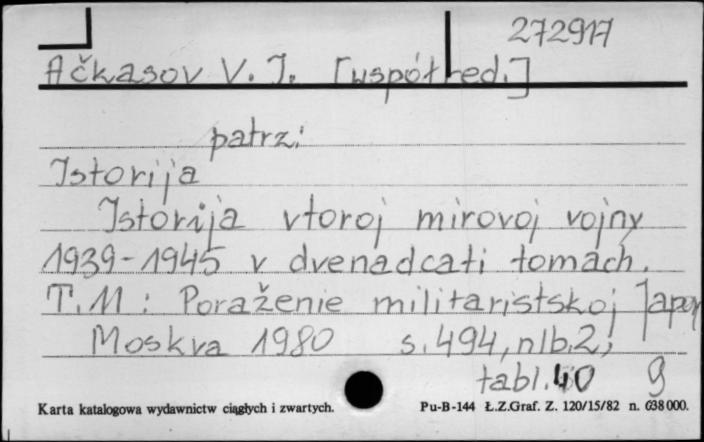 272917
Ačkasov V. I. [współred.]
patrz:
Istorija
Istorija vtoroj mirovoj vojny
1939-1945 v dvenadcati tomach.
T. 11: Poraženie militaristskoj Japon
Moskva 1980 s. 494, nlb. 2,
tabl. 40 9
Karta katalogowa wydawnictw ciągłych i zwartych. Pu-B-144 Ł.Z.Graf. Z. 120/15/82 n. 638 000.